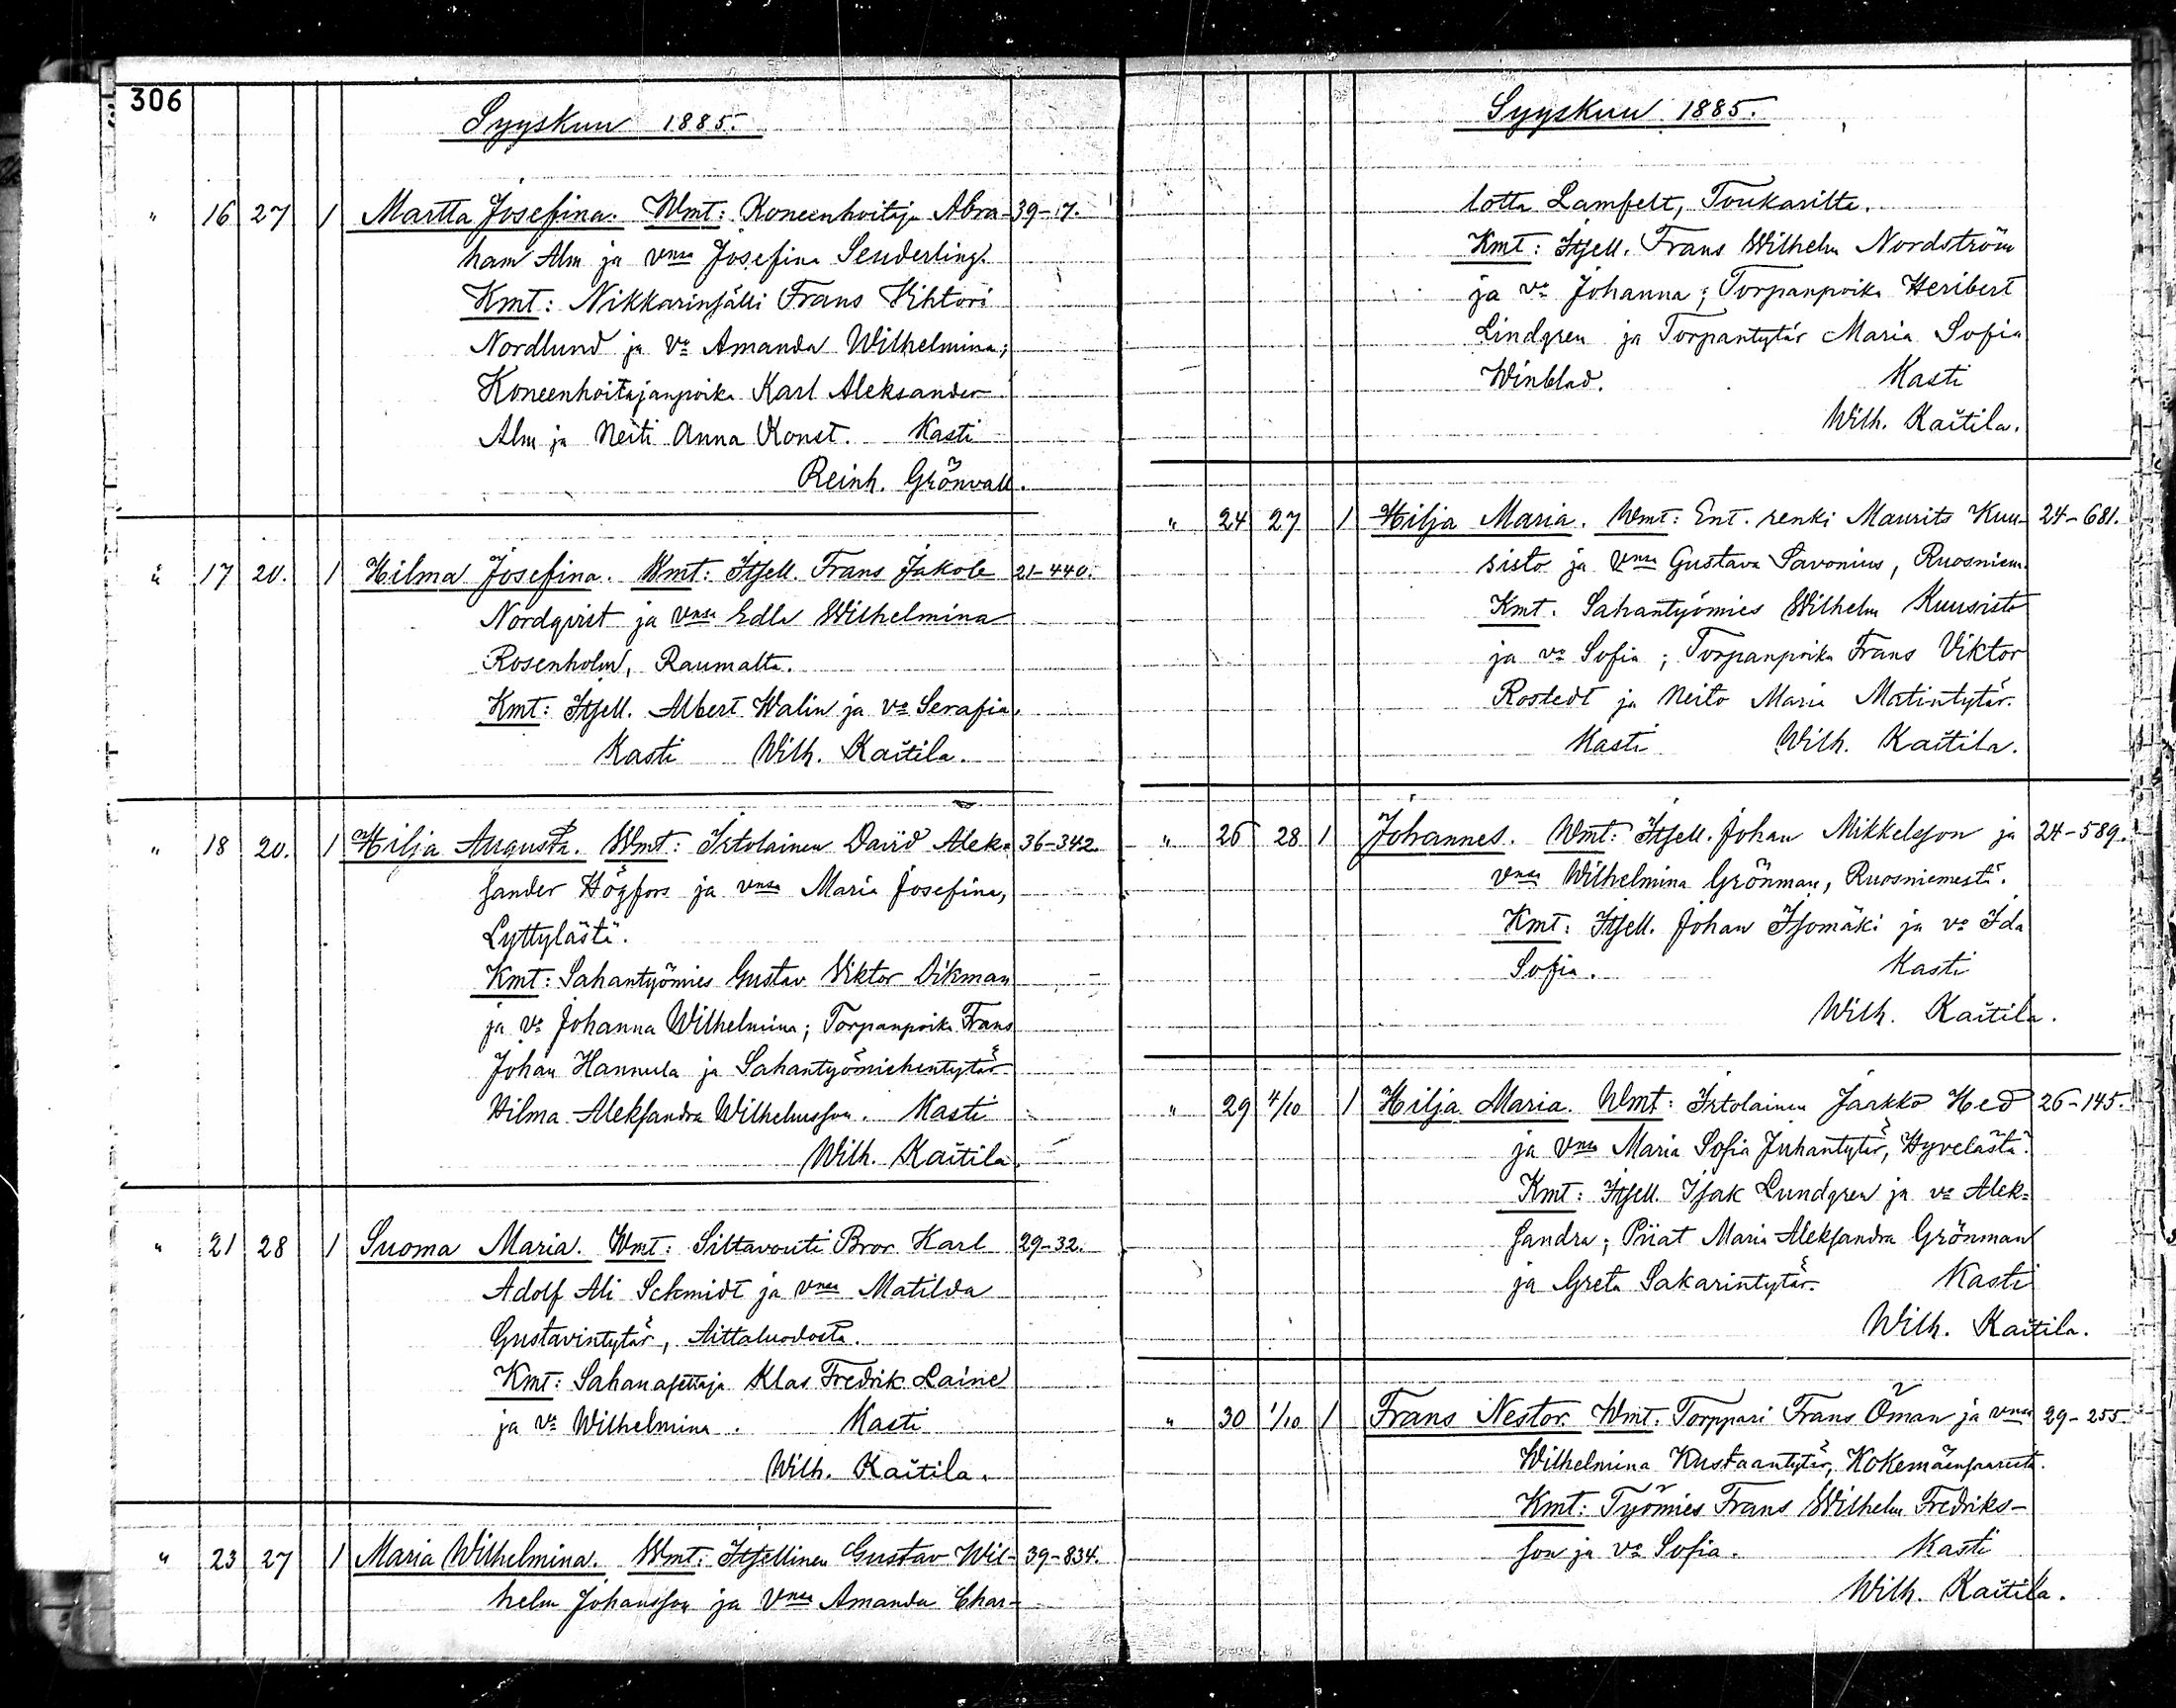 306
Syyskuu 1885.
" 16 27 1 Martta Josefina. Wmt: Koneenhoitaja Abra- 39-17.
ham Alm ja vnsa Josefina Senderling.
Kmt: Nikkarinsälli Frans Vihtori
Nordlund ja va Amanda Wilhelmina;
Koneenhoitajanpoika Karl Aleksander
Alm ja Neiti Anna Konst. Kasti
Reinh. Grönvall.
" 17 20. 1 Hilma Josefina. Wmt: Itsell. Frans Jakob 21-440.
Nordqvist ja vnsa Edla Wilhelmina
Rosenholm, Raumalta.
Kmt: Itsell. Albert Walin ja va Serafia.
Kasti Wilh. Kaitila.
" 18 20. 1 Hilja Augusta. Wmt: Irtolainen David Alek- 36-342.
sander Högfors ja vnsa Maria Josefina,
Lyttylästä.
Kmt: Sahantyömies Gustav Viktor Dikman
ja va Johanna Wilhelmina; Torpanpoika Frans
Johan Hannula ja Sahantyömiehentytär
Hilma Aleksandra Wilhelmsson. Kasti
Wilh. Kaitila.
" 21 28 1 Suoma Maria. Wmt: Siltavouti Bror Karl 29-32.
Adolf Ali Schmidt ja vnsa Matilda
Gustavintytär, Aittaluodosta.
Kmt: Sahanasettaja Klas Fredrik Laine
ja va Wilhelmina. Kasti
Wilh. Kaitila.
" 23 27 1 Maria Wilhelmina. Wmt: Itsellinen Gustav Wil- 39-834.
helm Johansson ja vnsa Amanda Char-
Syyskuu 1885.
lotta Lamfelt, Toukarilta.
Kmt: Itsell. Frans Wilhelm Nordström
ja va Johanna; Torpanpoika Heribert
Lindgren ja Torpantytär Maria Sofia
Winblad. Kasti
Wilh. Kaitila.
" 24 27 1 Hilja Maria. Wmt: Ent. renki Maurits Kuu- 24-681.
sisto ja vnsa Gustava Savonius, Ruosniem.
Kmt. Sahantyömies Wilhelm Kuusisto
ja va Sofia; Torpanpoika Frans Viktor
Rostedt ja Neito Maria Matintytär.
Kasti Wilh. Kaitila.
" 26 28 1 Johannes. Wmt: Itsell. Johan Mikkelsson ja 24-589.
vnsa Wilhelmina Grönman, Ruosniemestä.
Kmt: Itsell. Johan Isomäki ja va Ida
Sofia. Kasti
Wilh. Kaitila.
" 29 4/10 1 Hilja Maria. Wmt: Irtolainen Jaakko Hed 26-145.
ja vnsa Maria Sofia Juhantytär, Hyvelästä.
Kmt: Itsell. Isak Lundgren ja va Alek-
sandra; Piiat Maria Aleksandra Grönman
ja Greta Sakarintytär. Kasti
Wilh. Kaitila.
" 30 1/10 1 Frans Nestor. Wmt. Torppari Frans Öman ja vnsa 29-255.
Wilhelmina Kustaantytär, Kokemäensaaresta.
Kmt: Työmies Frans Wilhelm Fredriks-
son ja va Sofia. Kasti
Wilh. Kaitila.